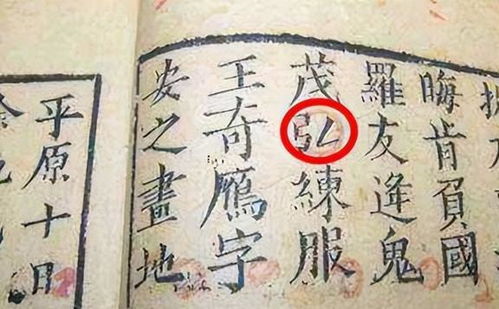 晦肯負國
羅友逢鬼
茂弘練服
王奇鴈字
安之畫地
平原十日